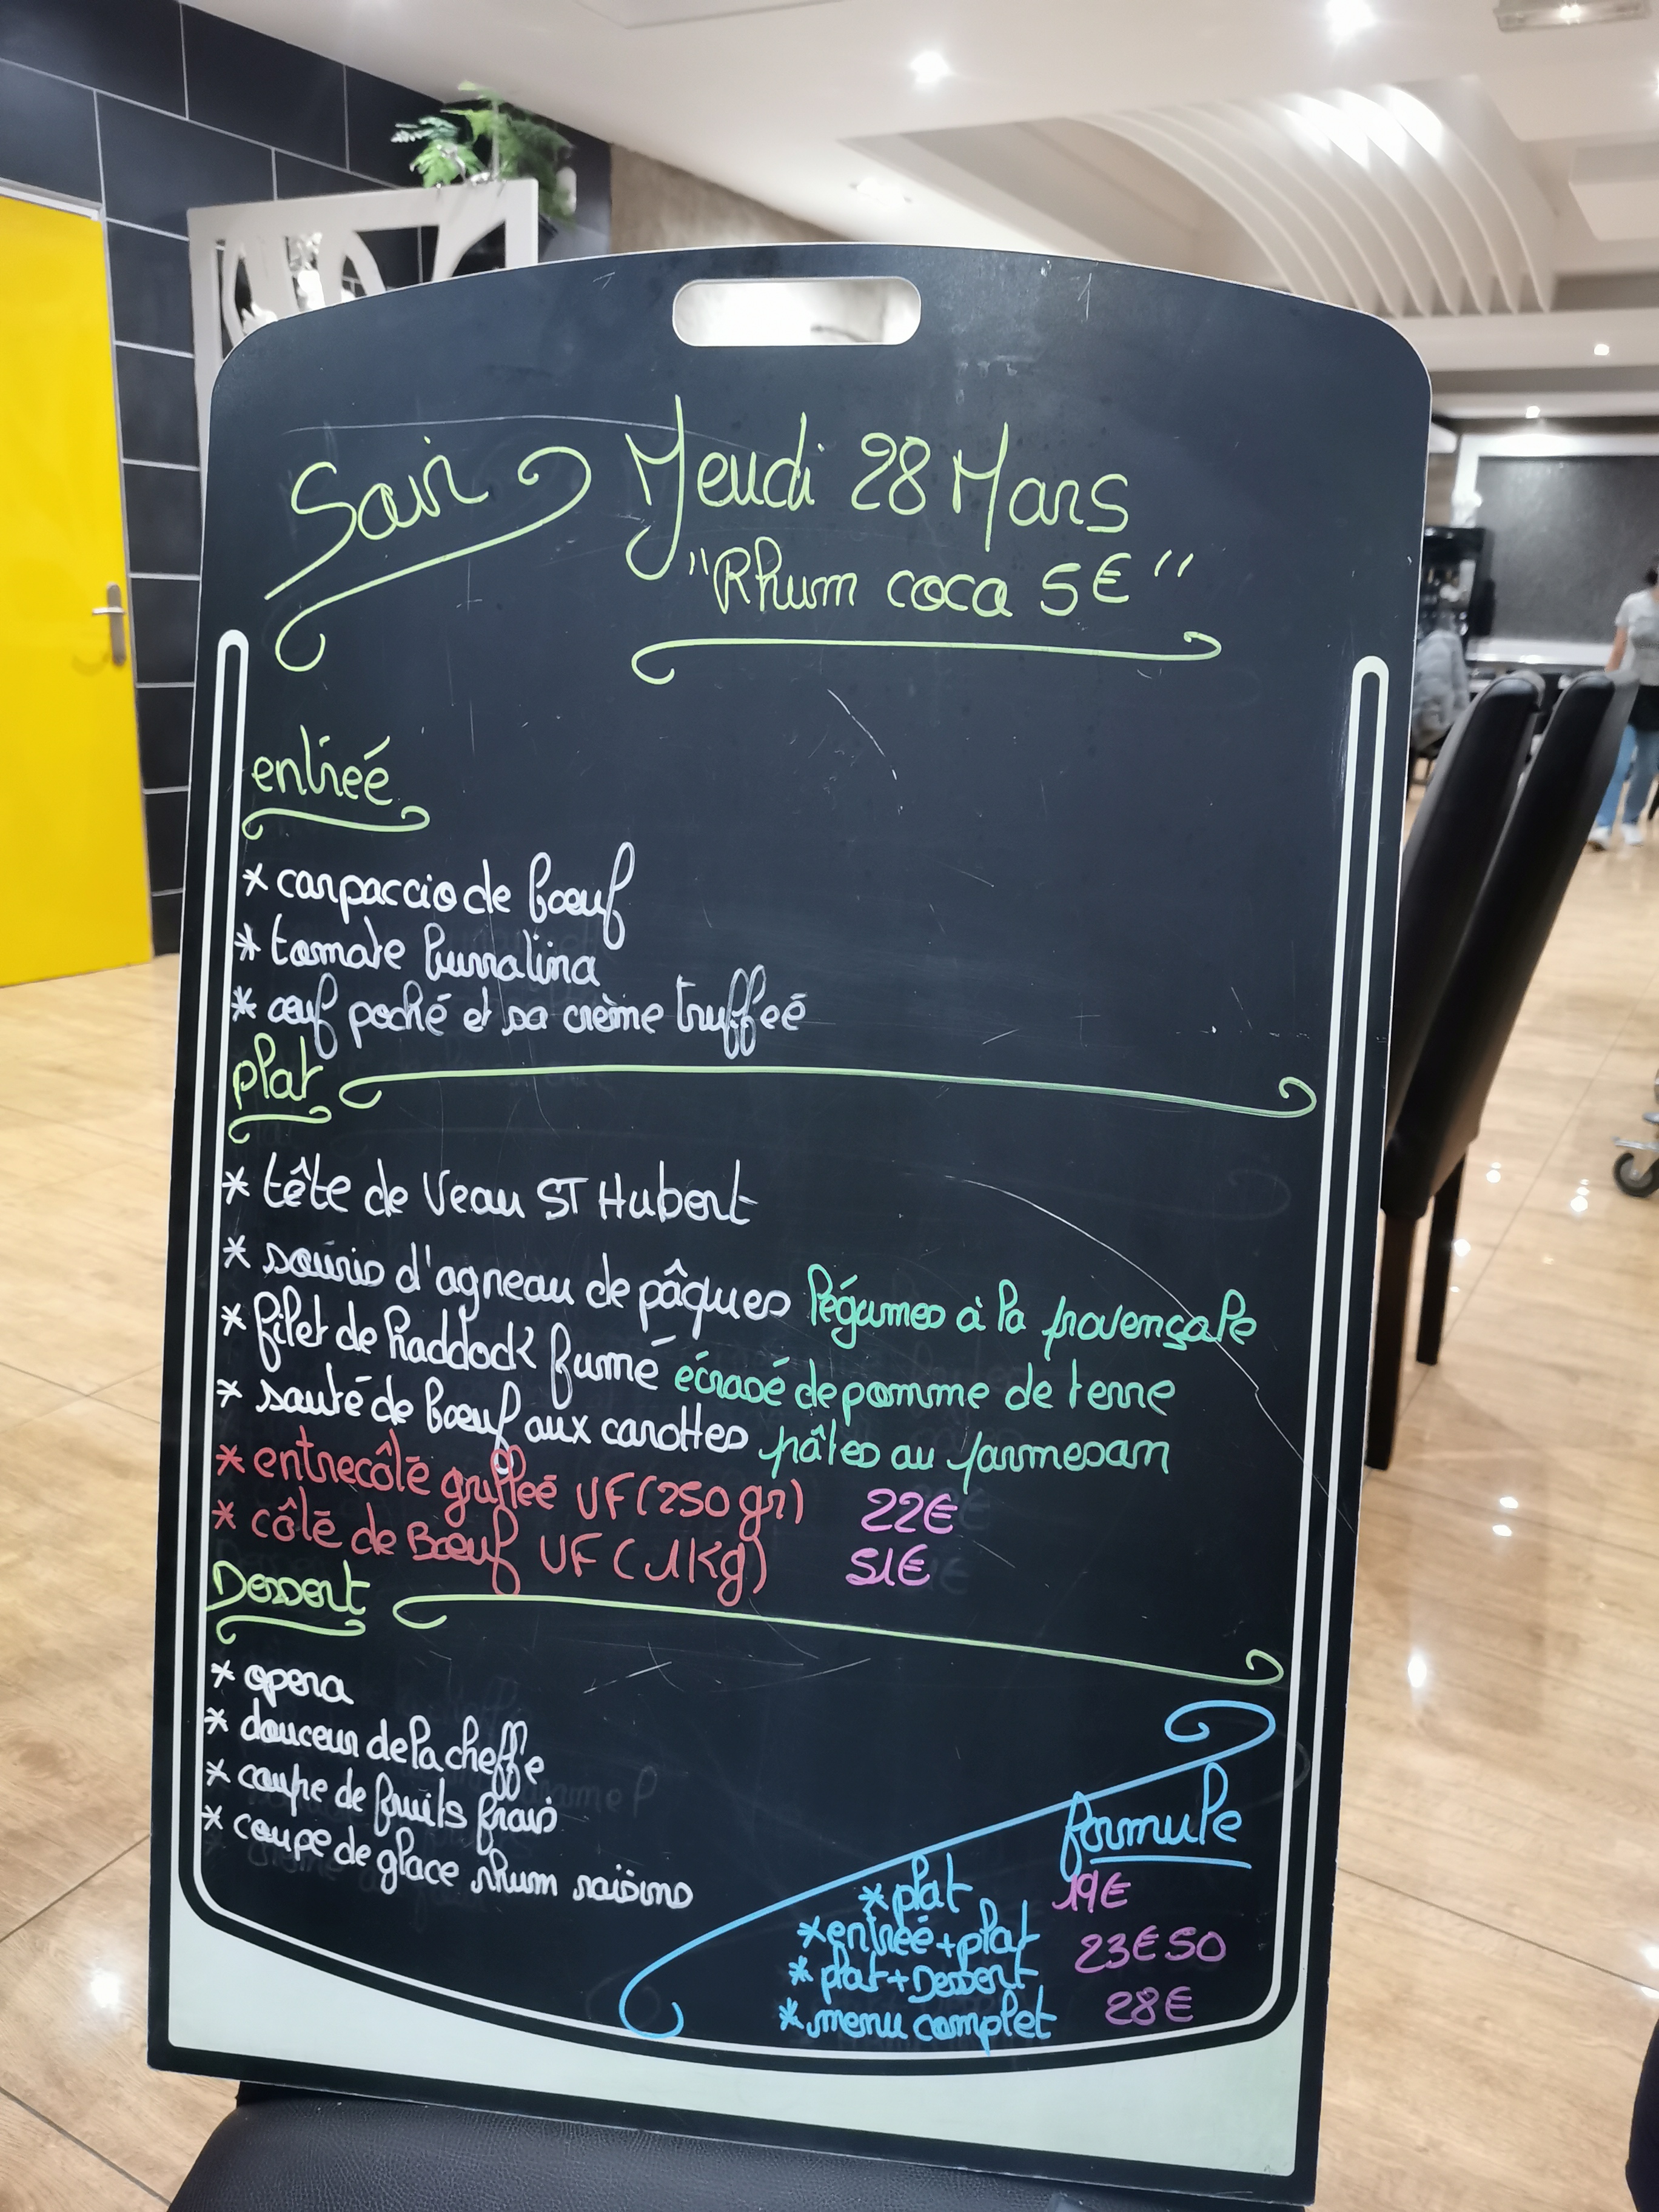 Soir Jeudi 28 Mars
"Rhum coca 5€"
entreé
* carpaccio de bœuf
* tomate burratina
* œuf poché et sa crème truffeé
plat
* tête de Veau ST Hubert
* souris d'agneau de pâques légumes à la provençale
* filet de haddock fumé écrasé de pomme de terre
* sauté de bœuf aux carottes pâtes au parmesam
* entrecôté grilleé VF (250 gr) 22€
* côté de Bœuf VF (1Kg) 51€
Dessert
* opera
* douceur de la cheffe
* coupe de fruits frais
* coupe de glace rhum raisins
formule
* plat 19€
* entreé + plat 23€50
* plat + Dessert
* menu complet 28€